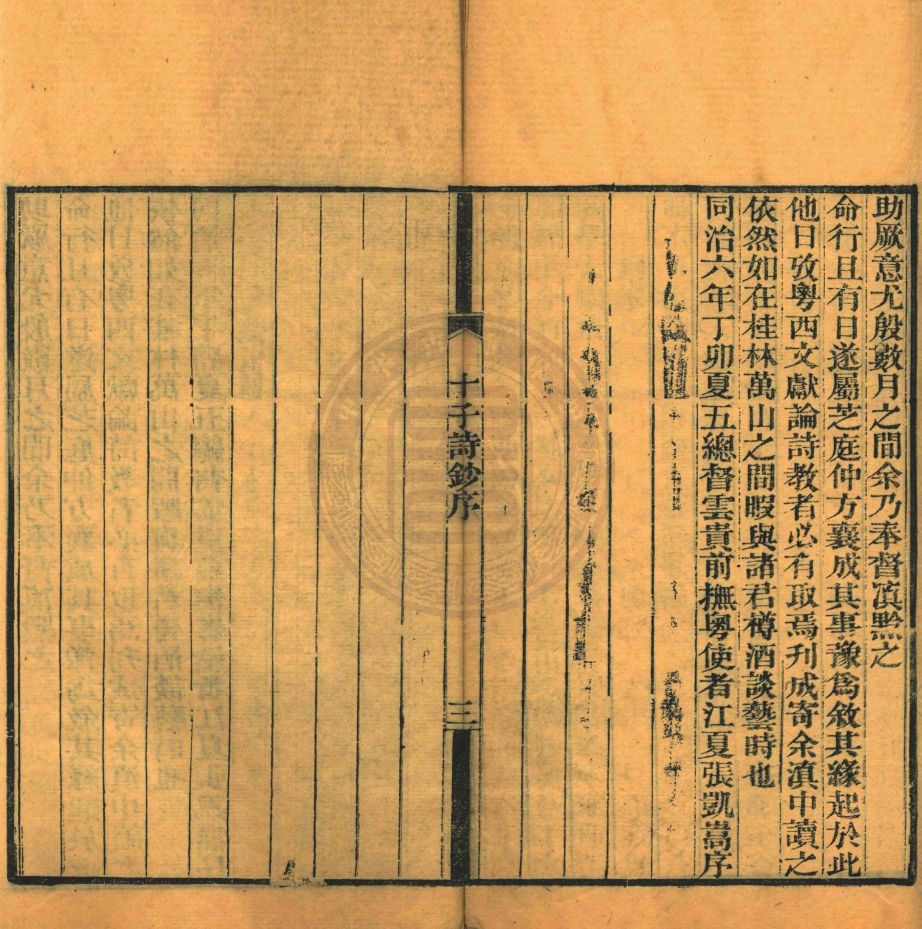 助厥意尤殷數月之間余乃奉督滇黔之
命行且有日遂屬芝庭仲方襄成其事豫爲敘其緣起於此
他日攷粵西文獻論詩教者必有取焉刋成寄余滇中讀之
依然如在桂林萬山之間暇與諸君樽酒談藝時也
同治六年丁卯夏五總督雲貴前撫粵使者江夏張凱嵩序
十子詩鈔序
三